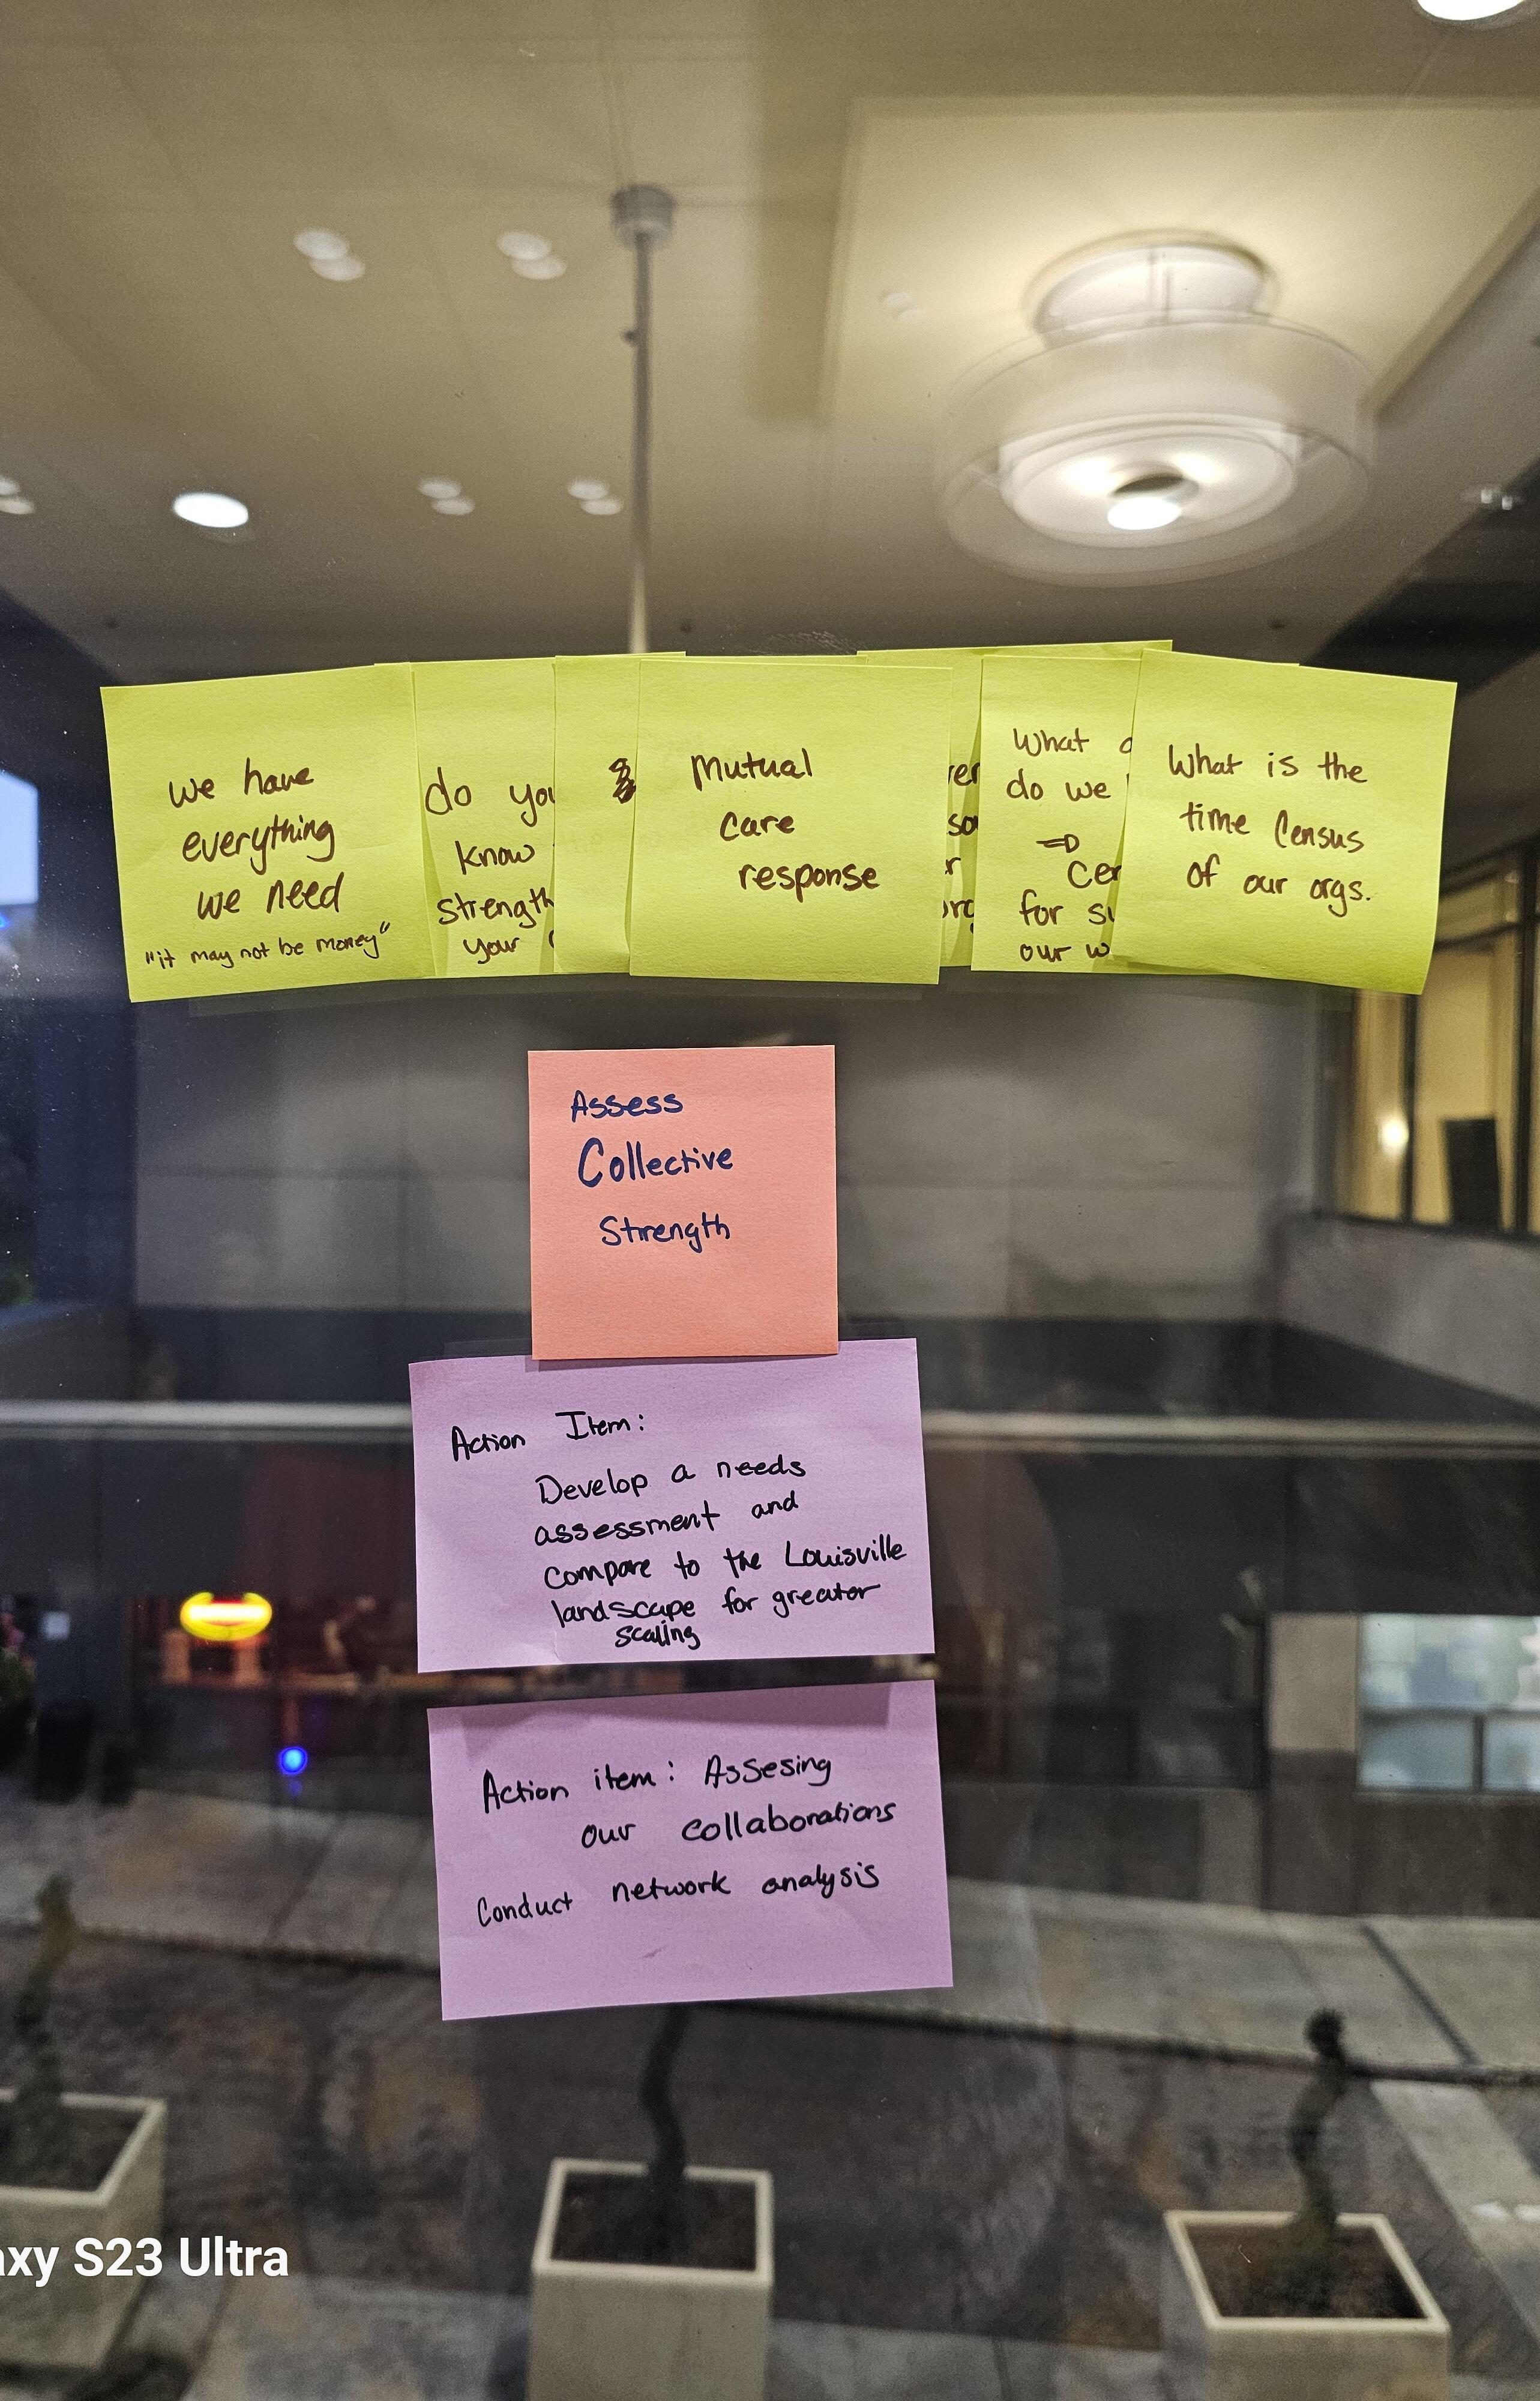 we have
everything
we need
"it may not be money"
do you
know
strength
your
Mutual
care
response
What
do we
for
our
What is the
time Census
of our orgs.
Assess
Collective
Strength
Action Item:
Develop a needs
assessment and
compare to the Louisville
landscape for greater
scaling
Action item: Assesing
our collaborations
Conduct network analysis
axy S23 Ultra